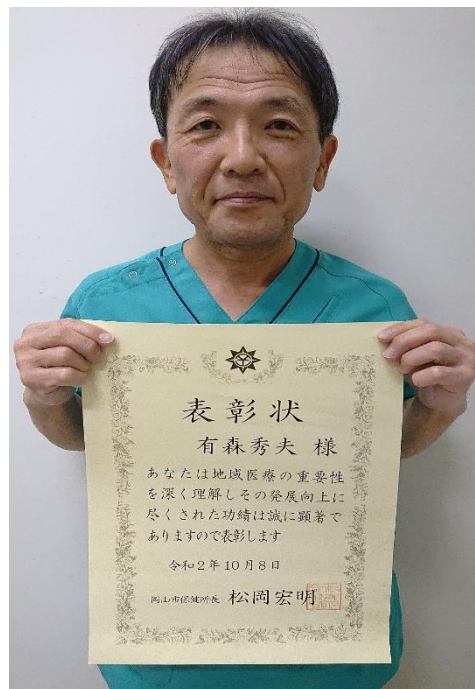 表彰状
有森秀夫 様
あなたは地域医療の重要性
を深く理解しその発展向上に
尽くされた功績は誠に顕著で
ありますので表彰します
令和2年10月8日
岡山市保健所長 松岡宏明